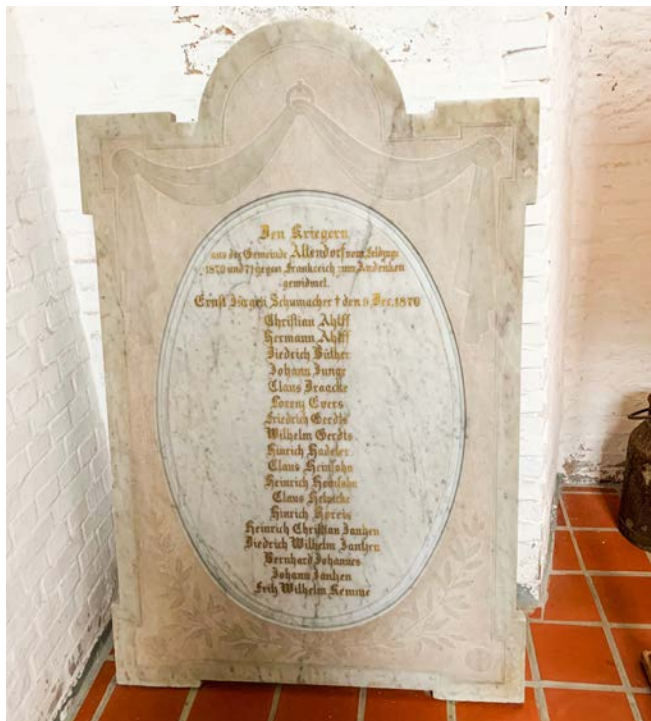 Den Kriegern
aus der Gemeinde Altendorf vom Feldzuge
1870 und 71 gegen Frankreich zum Andenken
gewidmet.
Ernst Jürgen Schumacher † den 9. Dec. 1870
Christian Ahlff
Hermann Ahlff
Diedrich Büther
Johann Junge
Claus Draacke
Lorenz Evers
Friedrich Gerdts
Wilhelm Gerdts
Hinrich Hadeler
Claus Heinsohn
Heinrich
Claus
Hinrich
Heinrich Christian Jantzen
Diedrich Wilhelm Jantzen
Bernhard Johannes
Johann Jantzen
Fritz Wilhelm Kemme